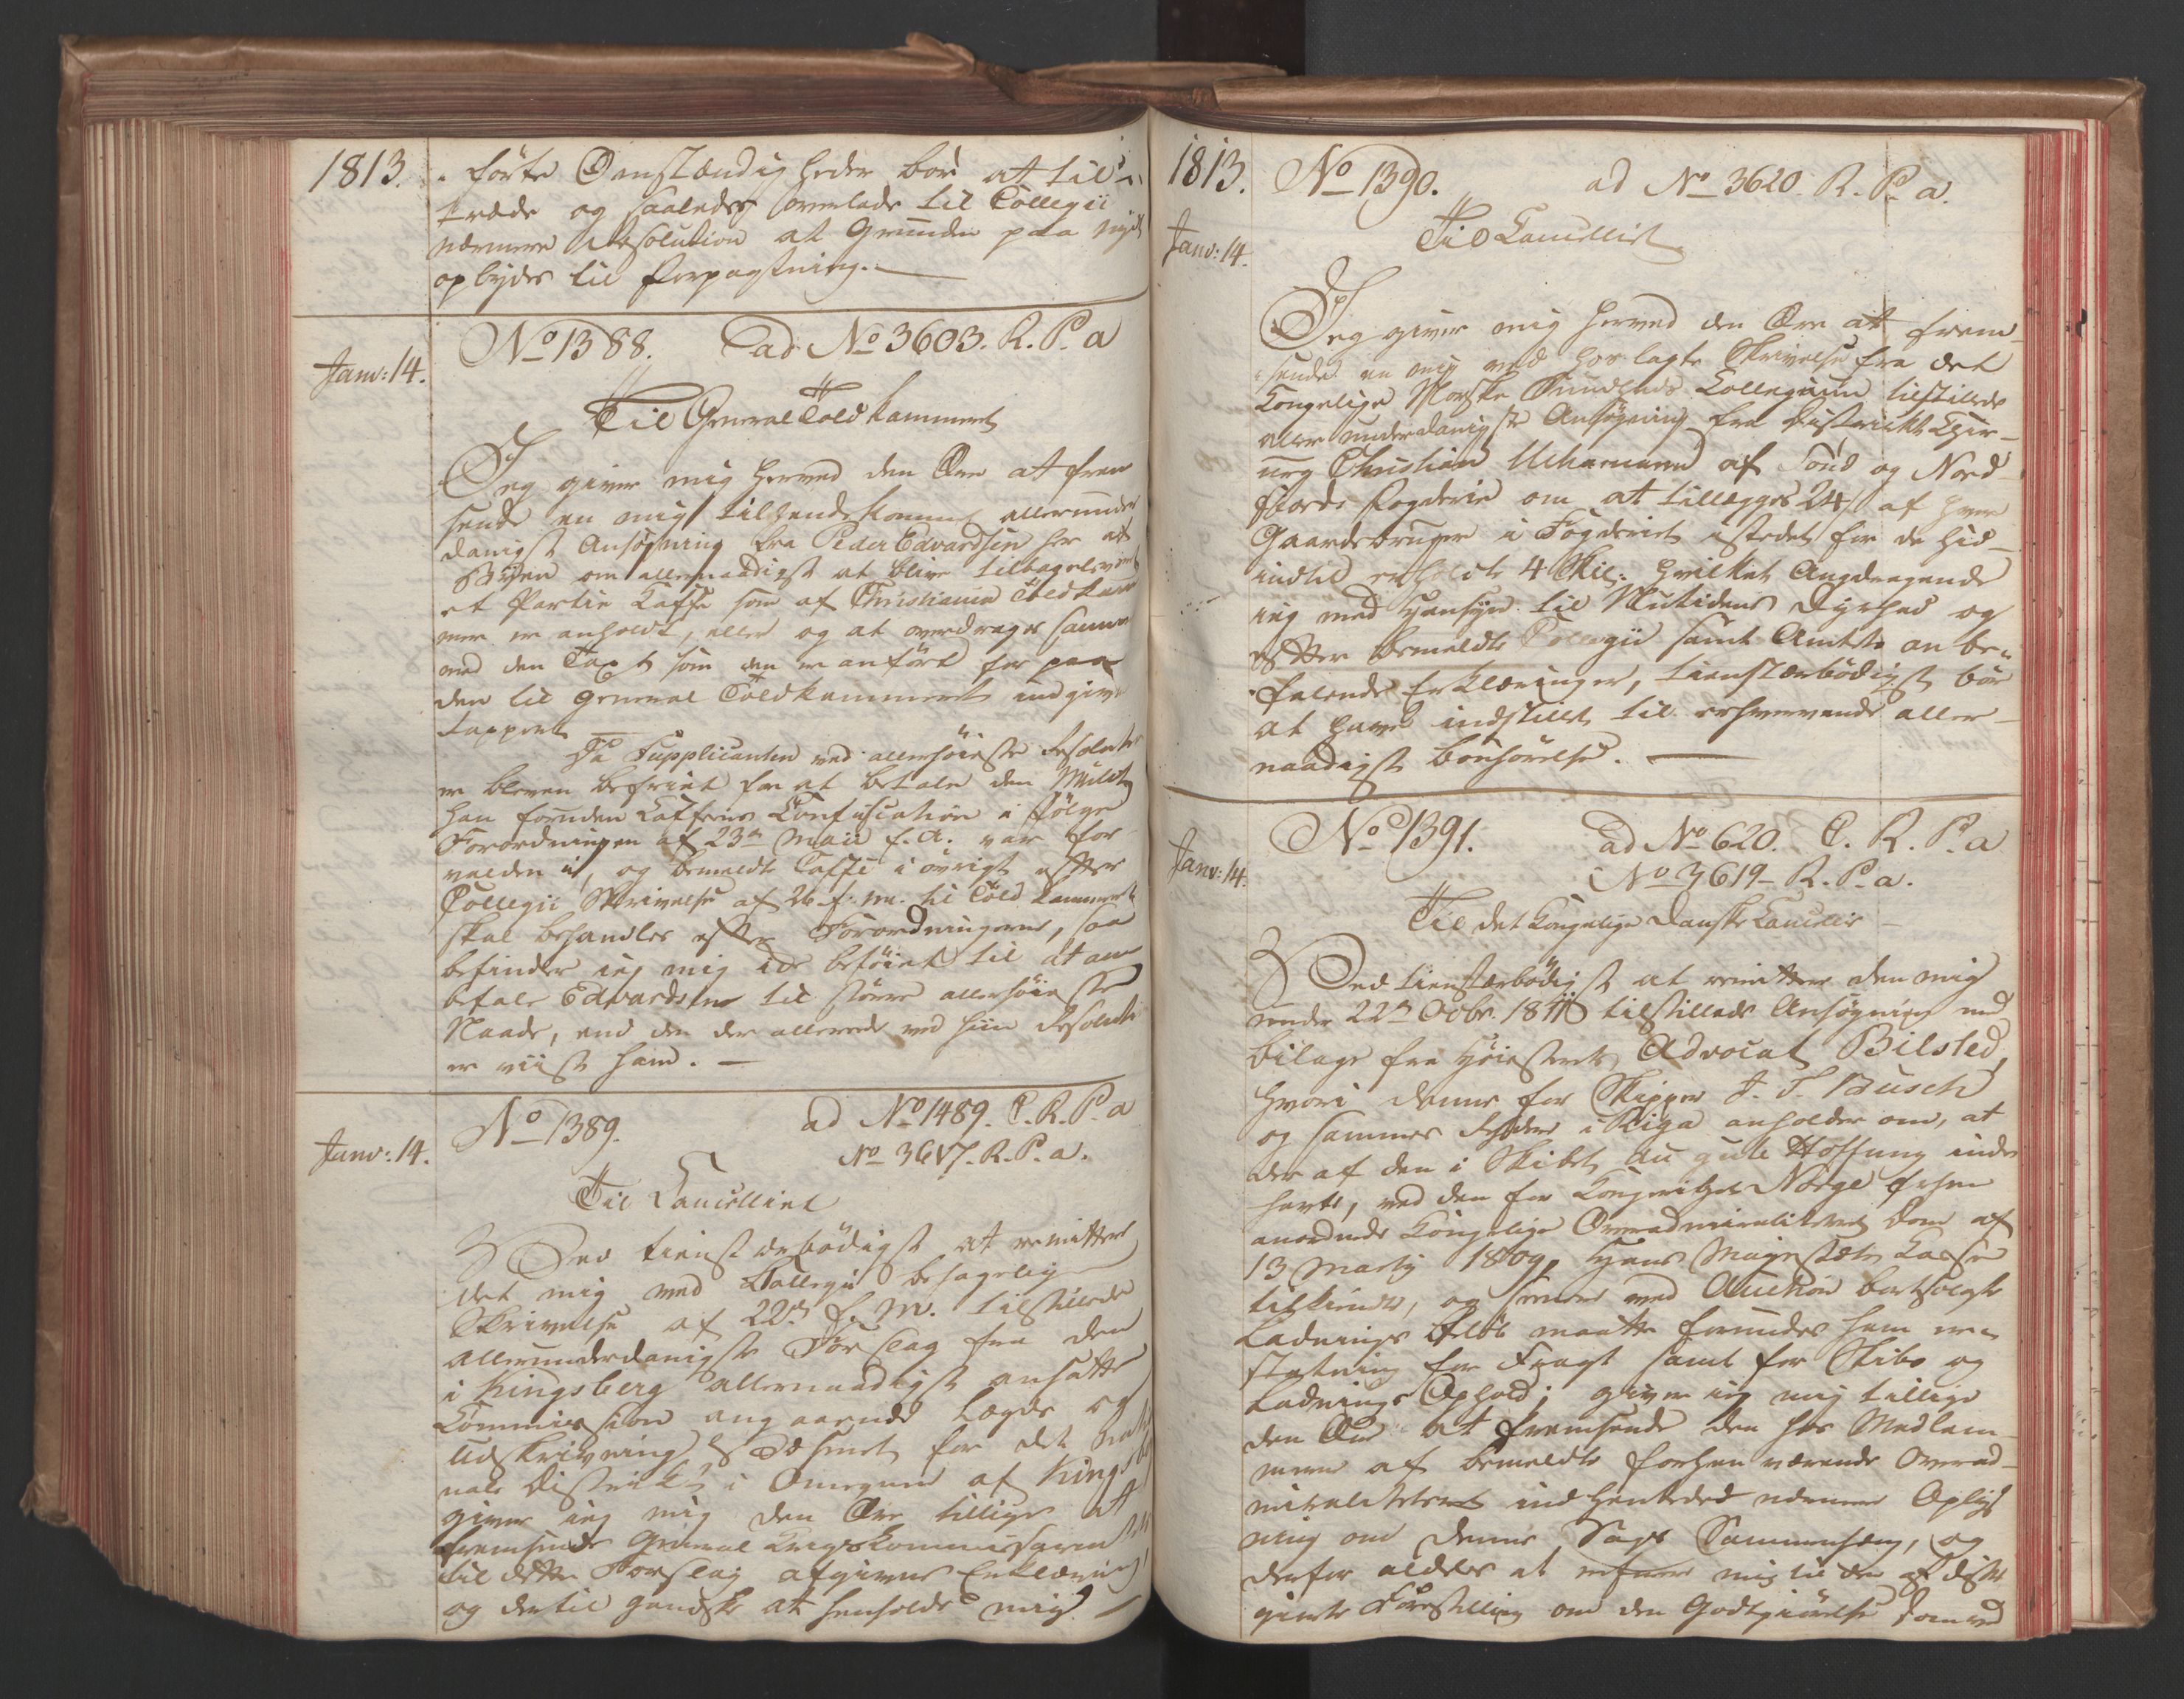 1813.
førte Omstændigheder bør at til-
træde og saaledes overlade til Collegii
nærmere Resolution at Grunden paa nyt
opbydes til Forpagtning.
Janv: 14.
No 1388. ad No 3603. R. P. a
Til General Told Kammeret
Jeg giver mig herved den Ære at frem
sende en mig tilhændekommet allerunder
danigst Ansøgning fra Peder Edvardsen her af
Byen om allernaadigst at blive tilbageleveret
et Partie Kaffe som af Christiania Toldkam
mer er anholdt, eller og at overdrages samme
med den Taxt som den er anført for paa
den til General Toldkammeret indgivne
Rapport
Da Supplicanten ved allerhøieste Resolution
er bleven befriet for at betale den Mulct
han foruden Caffeens Confiscation i Følge
Forordningen af 23de Maii f. A. var for
falden i, og bemeldte Caffe i øvrigt efter
Collegii Skrivelse af 26 f. M. til Told Kammeret
skal behandles efter Forordningerne, saa
befinder jeg mig ikke beføiet til at an
befale Edvardsen til større allerhøieste
Naade, end den der allerede ved hiin Resolution
er viist ham.
Janv: 14.
No 1389. ad No 1489. C. R. P. a
No 3617. R. P. a.
Til Cancelliet
Ved tienstærbødigst at remittere
det mig med Collegii behagelig
Skrivelse af 22de f. M. tilstillede
allerunderdanigste Forslag fra den
i Kingsberg allernaadigst ansatte
Commission angaaende Lægds og
Udskrivning Væsenet for det
nale District i Omegnen af Kingsberg
giver jeg mig den Ære tillige at
fremsende General Krigskommissairens
til dette Forslag afgivne Erklæring,
og dertil ganske at henholde mig.
1813.
No 1390. ad No 3620. R. P. a.
Janv: 14.
Til Cancelliet
Jeg giver mig herved den Ære at frem
sende en mig ved hoslagte Skrivelse fra det
Kongelige Norske Sundheds Collegium tilstillede
allerunderdanigste Ansøgning fra Districts Chir-
urg Christian Uchermann af Sønd og Nord
fiords Fogderie om at tillægges 24 s af hver
Gaardbruger i Fogderiet istedet for de hid-
indtil erholdte 4 Skil: hvilket Andragende
jeg med Hensyn til Nutidens Dyrhed og
efter bemeldte Collegii samt Amtets anbe-
falende Erklæringer, tienstærbødigst bør
at have indstillet til erhvervende aller-
naadigst Bønhørelse.
Janv: 14.
No 1391. ad No 620. C. R. P. a
No 3619 R. P. a.
Til det Kongelige Danske Cancelie
Ved tienstærbødigst at remittere den mig
under 22de Octbr. 1811 tilstillede Ansøgning med
Bilage fra Høiesterets Advocat Bilsted,
hvori denne for Skipper J. F. Busch
og sammes Rhedere i Riga anholder om, at
der af den i Skibet die gute Hoffnung inde
havte, ved den for Kongeriget Norge forhen
anordnede Kongelige Overadmiralitetsret Dom af
13 Martij 1809, Hans Majestæts Casse
tilkiendte, og senere ved Auction bortsolgte
Ladnings Beløb maatte forundes ham er-
statning for Fragt samt for Skibs og
Ladnings Ophold; giver jeg mig tillige
den Ære at fremsende den hos Medlem-
merne af bemeldte forhen værende Overad-
miralitetsret indhentede nærmere Oplys
ning om denne Sags Sammenhæng, og
derfor aldeles at referere mig til den af disse
giorte Forestilling om den Godtgiørelse som ved